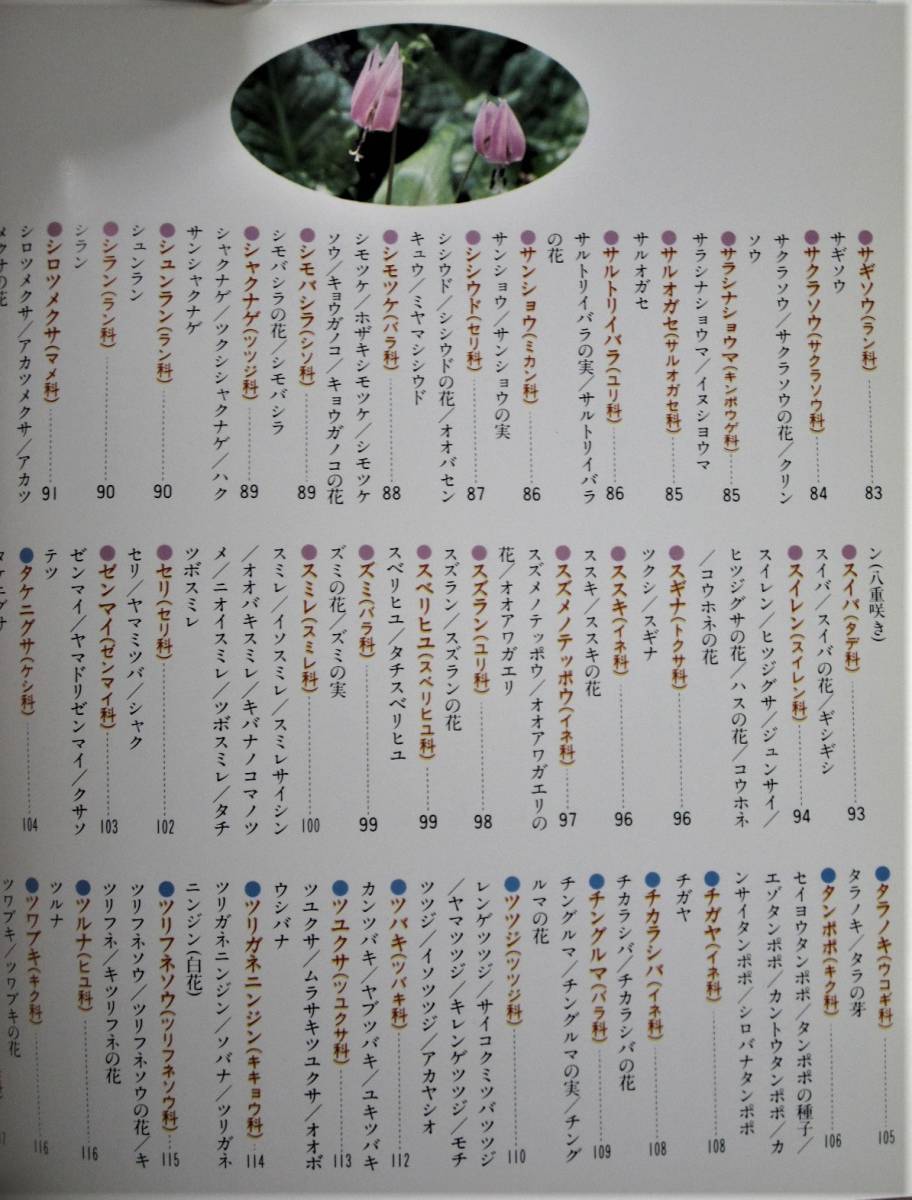 ●サギソウ(ラン科)………83
サギソウ
●サクラソウ(サクラソウ科)………84
サクラソウ/サクラソウの花/クリン
ソウ
●サラシナショウマ(キンポウゲ科)………85
サラシナショウマ/イヌショウマ
●サルオガセ(サルオガセ科)………85
サルオガセ
●サルトリイバラ(ユリ科)………86
サルトリイバラの実/サルトリイバラ
の花
●サンショウ(ミカン科)………86
サンショウ/サンショウの実
●シシウド(セリ科)………87
シシウド/シシウドの花/オオバセン
キュウ/ミヤマシシウド
●シモツケ(バラ科)………88
シモツケ/ホザキシモツケ/シモツケ
ソウ/キョウガノコ/キョウガノコの花
●シモバシラ(シソ科)………89
シモバシラの花/シモバシラ
●シャクナゲ(ツツジ科)………89
シャクナゲ/ツクシシャクナゲ/ハク
サンシャクナゲ
●シュンラン(ラン科)………90
シュンラン
●シラン(ラン科)………90
シラン
●シロツメクサ(マメ科)………91
シロツメクサ/アカツメクサ/アカツ
メクサの花
ン(八重咲き)
●スイバ(タデ科)………93
スイバ/スイバの花/ギシギシ
●スイレン(スイレン科)………94
スイレン/ヒツジグサ/ジュンサイ/
ヒツジグサの花/ハスの花/コウホネ
/コウホネの花
●スギナ(トクサ科)………96
ツクシ/スギナ
●ススキ(イネ科)………96
ススキ/ススキの花
●スズメノテッポウ(イネ科)………97
スズメノテッポウ/オオアワガエリの
花/オオアワガエリ
●スズラン(ユリ科)………98
スズラン/スズランの花
●スベリヒユ(スベリヒユ科)………99
スベリヒユ/タチスベリヒユ
●ズミ(バラ科)………99
ズミの花/ズミの実
●スミレ(スミレ科)………100
スミレ/イソスミレ/スミレサイシン
/オオバキスミレ/キバナノコマノツ
メ/ニオイスミレ/ツボスミレ/タチ
ツボスミレ
●セリ(セリ科)………102
セリ/ヤマミツバ/シャク
●ゼンマイ(ゼンマイ科)………103
ゼンマイ/ヤマドリゼンマイ/クサソ
テツ
●タケニグサ(ケシ科)………104
タケニグサ
●タラノキ(ウコギ科)………105
タラノキ/タラの芽
●タンポポ(キク科)………106
セイヨウタンポポ/タンポポの種子/
エゾタンポポ/カントウタンポポ/カ
ンサイタンポポ/シロバナタンポポ
●チガヤ(イネ科)………108
チガヤ
●チカラシバ(イネ科)………108
チカラシバ/チカラシバの花
●チングルマ(バラ科)………109
チングルマ/チングルマの実/チング
ルマの花
●ツツジ(ツツジ科)………110
レンゲツツジ/サイコクミツバツツジ
/ヤマツツジ/キレンゲツツジ/モチ
ツツジ/イソツツジ/アカヤシオ
●ツバキ(ツバキ科)………112
カンツバキ/ヤブツバキ/ユキツバキ
●ツユクサ(ツユクサ科)………113
ツユクサ/ムラサキツユクサ/オオボ
ウシバナ
●ツリガネニンジン(キキョウ科)………114
ツリガネニンジン/ソバナ/ツリガネ
ニンジン(白花)
●ツリフネソウ(ツリフネソウ科)………115
ツリフネソウ/ツリフネソウの花/キ
ツリフネ/キツリフネの花
●ツルナ(ヒユ科)………116
ツルナ
●ツワブキ(キク科)………116
ツワブキ/ツワブキの花